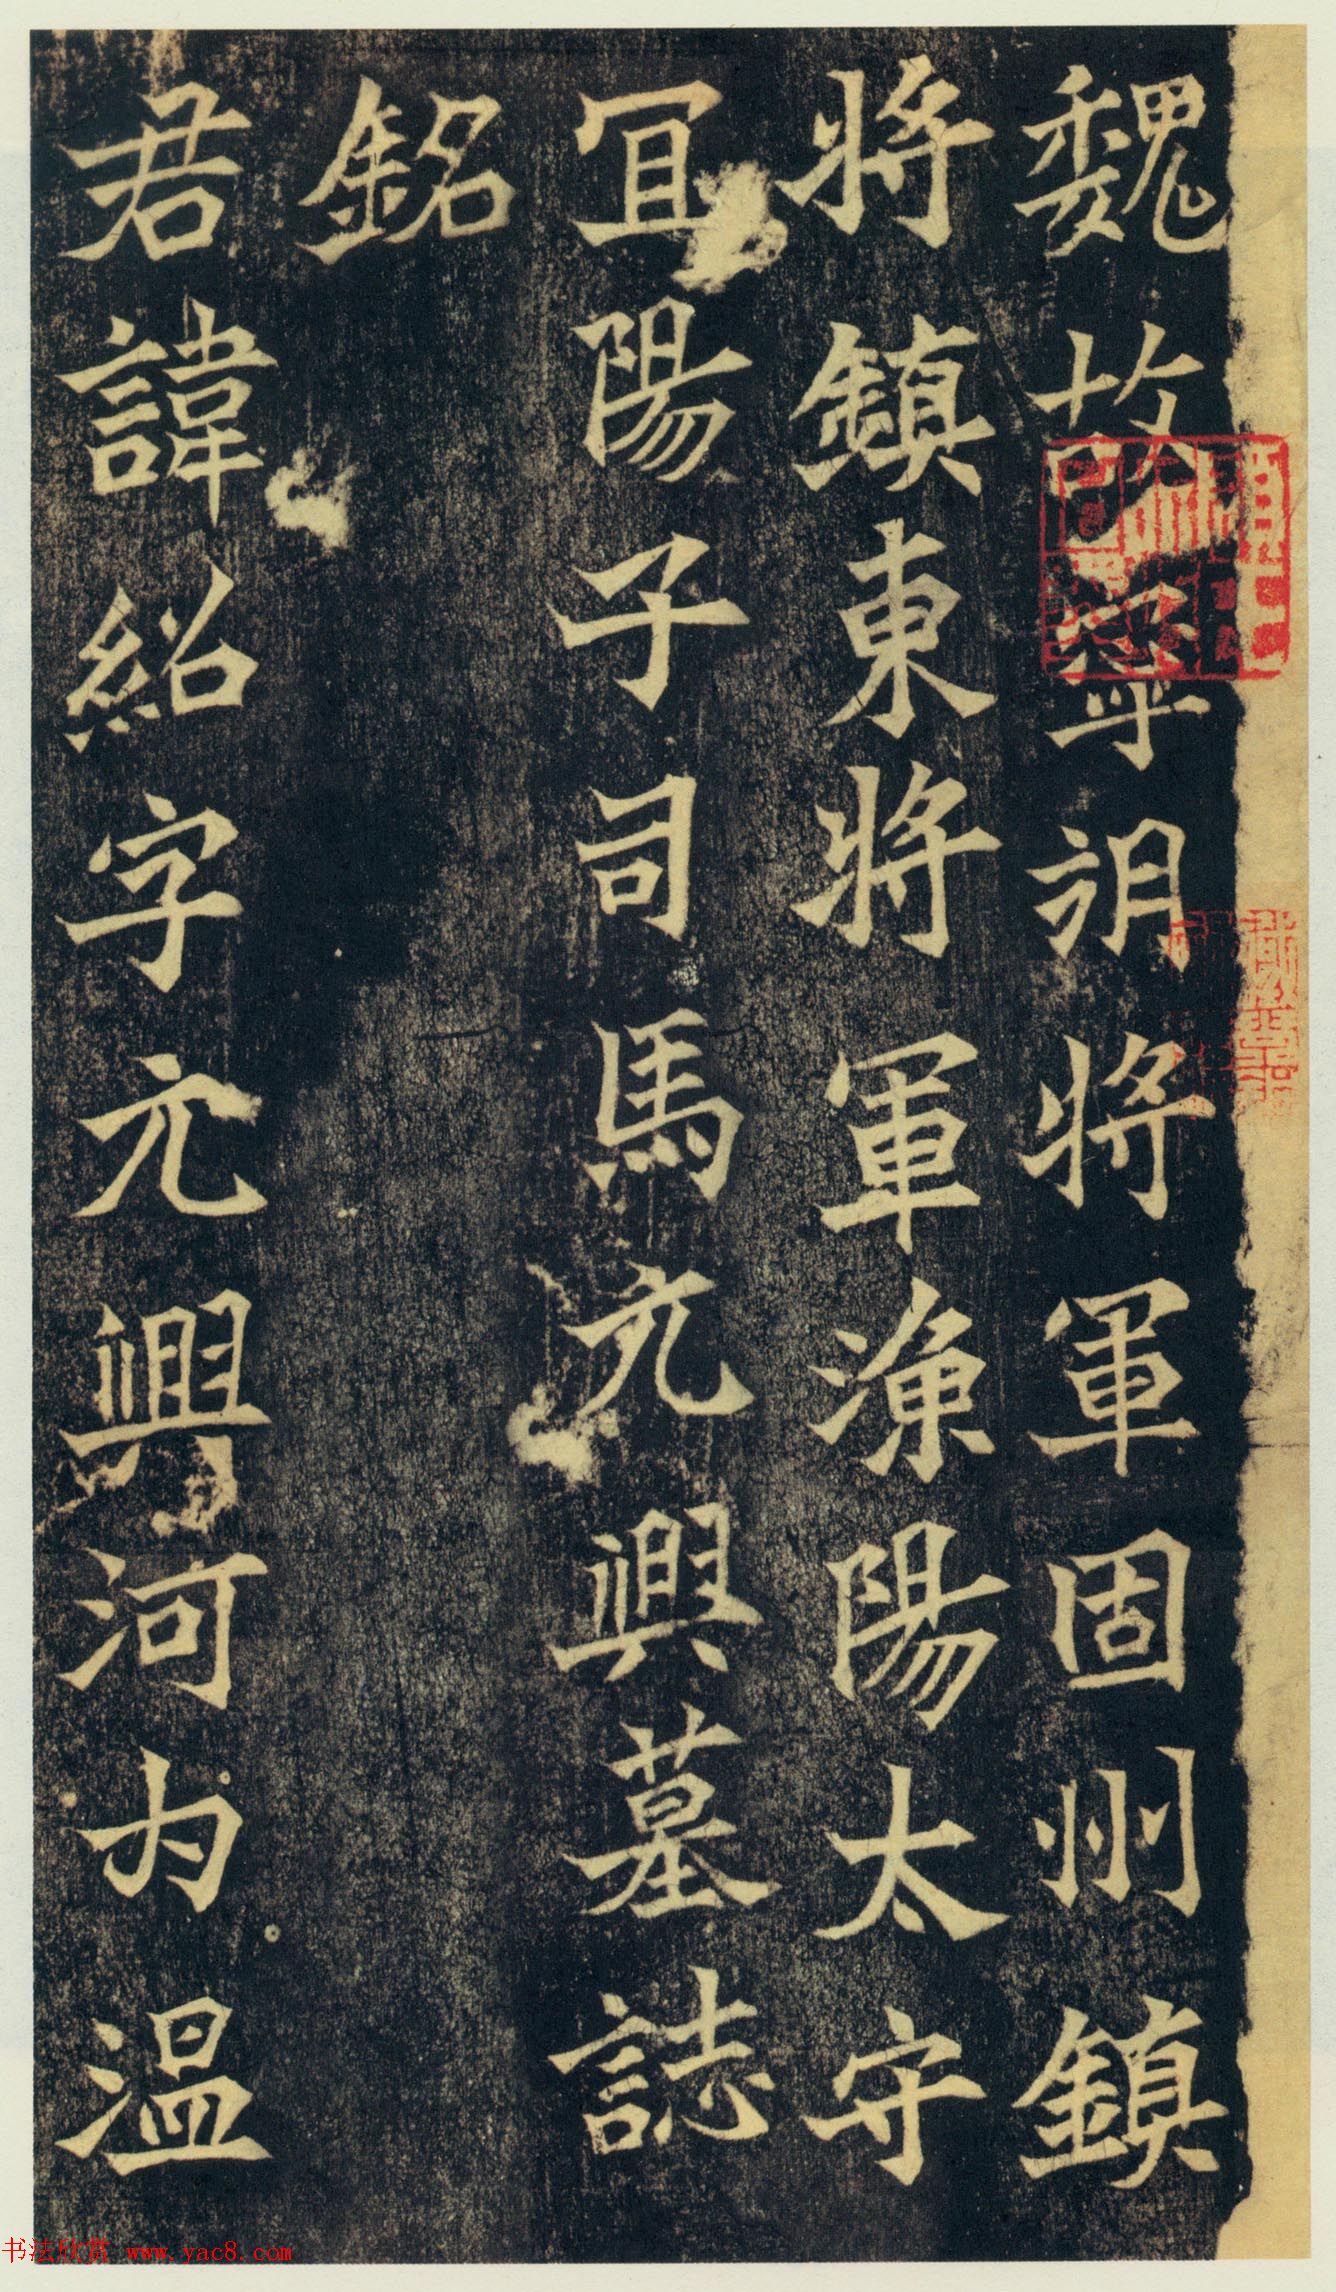 魏故寧朔將軍固州鎮
將鎮東將軍漁陽太守
冝陽子司馬元興墓誌
銘
君諱紹字元興河内温
书法欣赏 www.yac8.com